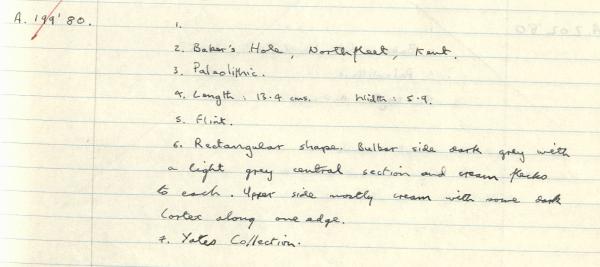 A. 199'80.
1.
2. Baker's Hole, Northfleet, Kent.
3. Paleolithic.
4. Length: 13.4 cms. Width: 5.9.
5. Flint.
6. Rectangular shape. Bulbar side dark grey with
a light grey central section and cream flecks
to each. Upper side mostly cream with some dark
Cortex along one edge.
7. Yates Collection.